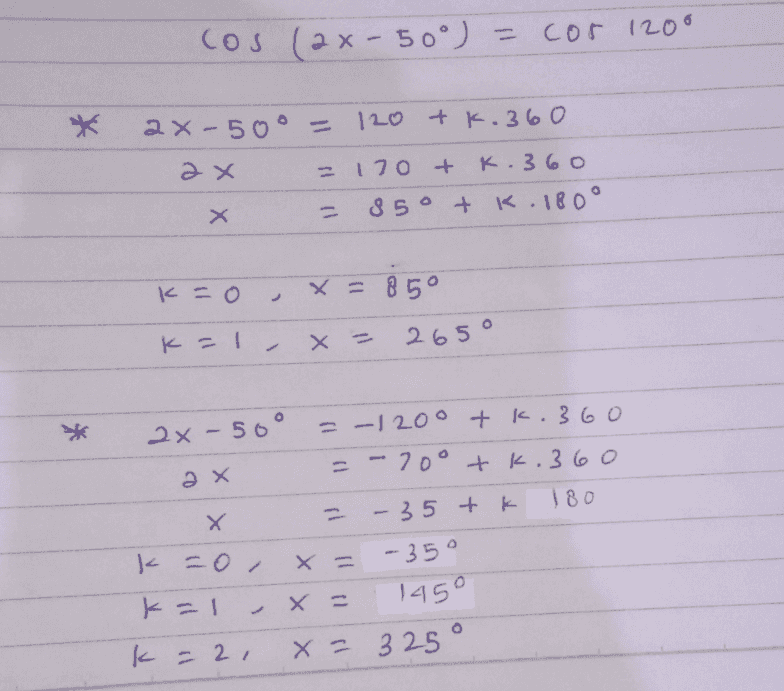 cos (2x - 50°) = cos 120°
* 2x - 50° = 120 + k.360
2x = 170 + k.360
x = 85° + k.180°
k = 0, x = 85°
k = 1, x = 265°
* 2x - 50° = -120° + k.360
2x = -70° + k.360
x = -35 + k 180
k = 0, x = -35°
k = 1, x = 145°
k = 2, x = 325°